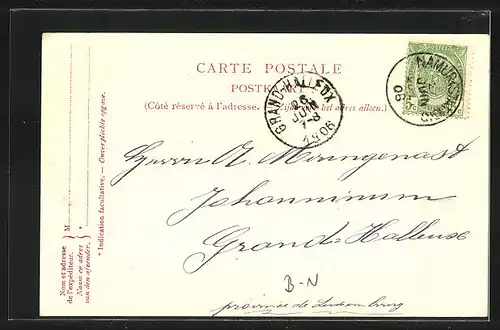 CARTE POSTALE
POSTKAART
(Côté réservé à l'adresse. — Zijde van het adres alleen.)
GRAND-HALLEUX
26
JUIN
7-8
1906
NAMUR
JUIN
06
Herrn A.
Johanninum
Grand Halleux
B-N
province de Luxembourg
* Indication facultative. — Onverplichte opgave.
Nom et adresse
de l'expéditeur.
Naam en adres
van den afzender.
M
*